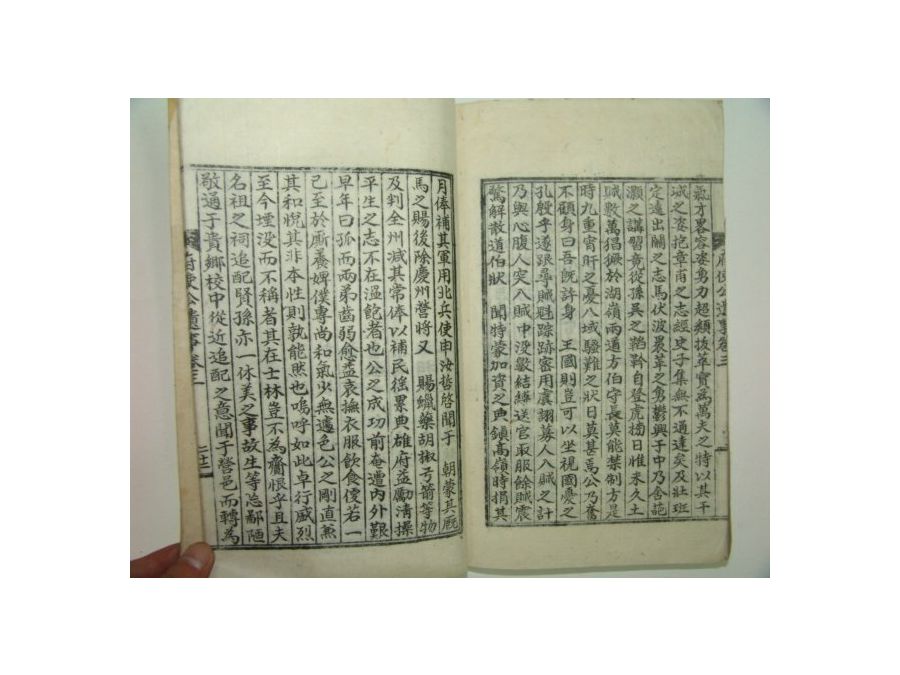 府使公遺事卷三
氣才畧容姿勇力超類拔萃實爲萬夫之特以其干
城之姿抱章甫之志經史子集無不通達矣及壯班
定遠出關之志馬伏波裹革之勇鬱興于中乃舍詑
灝之講習竟從孫吳之韜鈐自登虎榜日惟未久土
賊數萬猖獗於湖嶺兩道方伯守長莫能禁制方是
時九重宵肝之憂八域騷難之狀日莫甚焉公乃奮
不顧身曰吾旣許身 王國則豈可以坐視國憂之
孔殷乎遂跟尋賊魁踪跡審用虞詡募人入賊之計
乃與心腹人突入賊中没數結縛送官厥服餘賊震
驚解散道伯狀 聞特蒙加資之典鎭高嶺時捐其
月俸補其軍用北兵使申汝哲啓聞于 朝蒙其厩
馬之賜後除慶州營將又 賜蠟藥胡椒弓箭等物
及判全州减其常俸以補民徭累典雄府益勵淸操
平生之志不在温飽者也公之成功前庵遭內外艱
早年曰孤而兩弟齒弱愈益哀撫衣服飮食侵若一
己至於厮養婢僕專尙和氣少無遽色公之剛直兼
其和悅其非本性則孰能然也嗚呼如此卓行威烈
至今堙没而不稱者其在士林豈不爲齎恨乎且夫
名祖之祠追配賢孫亦一休美之事故生等忘鄙陋
敬通于貴鄕校中從近追配之意聞于營邑而轉爲
府使公遺事卷三 二十三